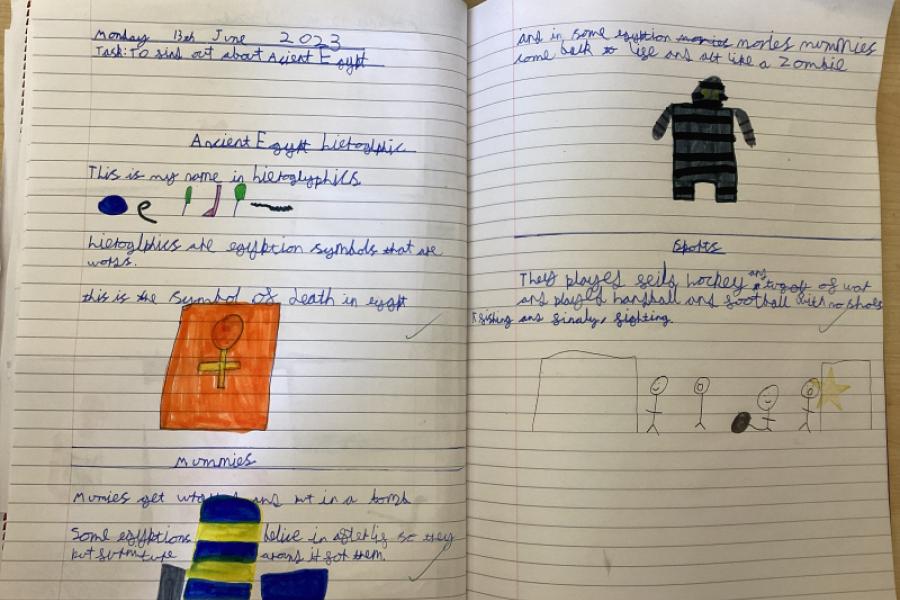 Monday 13th June 2023
Task: To find out about Acient Egypt
Ancient Egypt hieroglphic
This is my name in hieroglyphics
hieroglphics are egyption symbols that are
words.
this is the symbol of death in egypt
Mummies
Mumies get and put in a tomb
Some egyptions belive in afterlife so they
put furniture around it for them.
and in some egyption movies mummies
come back to life and act like a zombie
Sports
They played feild hockey and tug of war
and played handball and football with no shoes
fishing and finaly, fighting.